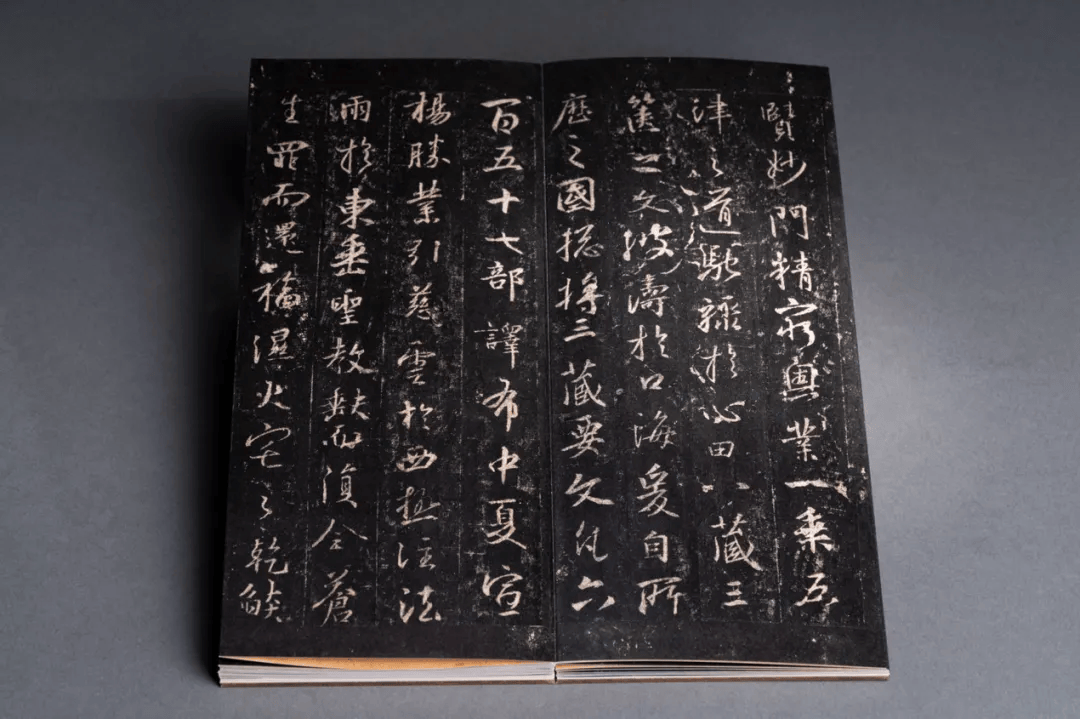 賢妙門精窮奧業一乘五
津之道馳驟於心田八藏三
篋之文波濤於口海爰自所
歷之國揔將三藏要文凡六
百五十七部譯布中夏宣
楊勝業引慈雲於西極注法
雨於東垂聖教缺而復全蒼
生罪而還福濕火宅之乾燄